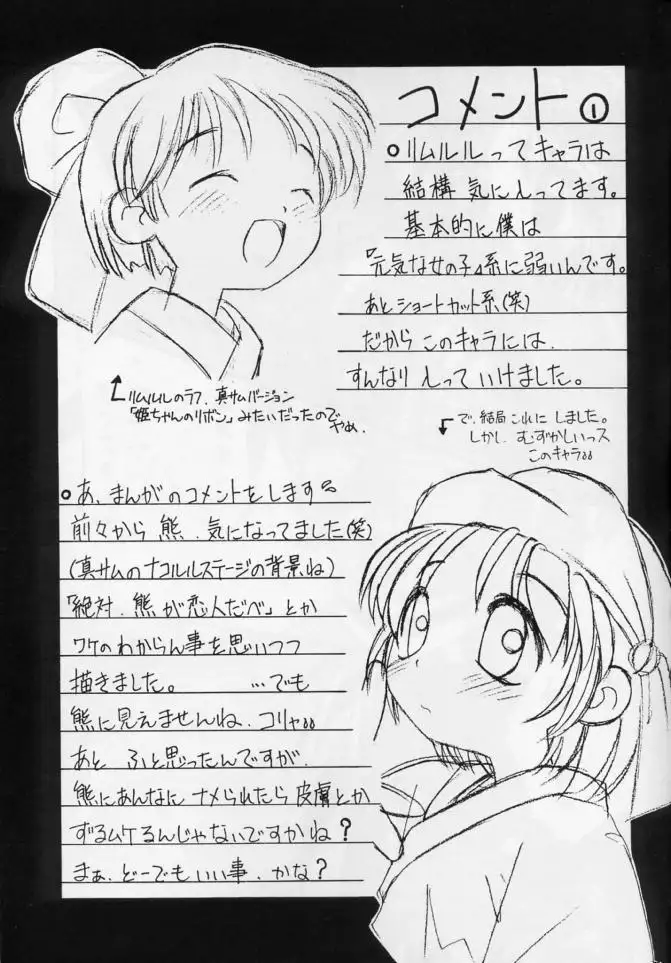 コメント①
○リムルルってキャラは
結構 気に入ってます。
基本的に僕は
『元気な女の子』系に弱いんです。
あと ショートカット系(笑)
だから このキャラには
すんなり 入って いけました。
リムルルのラフ、真サムバージョン
「姫ちゃんのリボン」みたいだったので
やめ、
で、結局 これに しました。
しかし、むずかしいっス
このキャラ。。
○あ、まんがのコメントをします。
前々から 熊、気になってました(笑)
(真サムのナコルルステージの背景ね)
「絶対、熊が恋人だべ」とか
ワケのわからん事を思いつつ
描きました。 …でも
熊に見えませんね、コリャ。。
あと ふと思ったんですが、
熊にあんなに ナメられたら 皮膚とか
ずるムケるんじゃないですかね?
まぁ、どーでもいい事、かな?